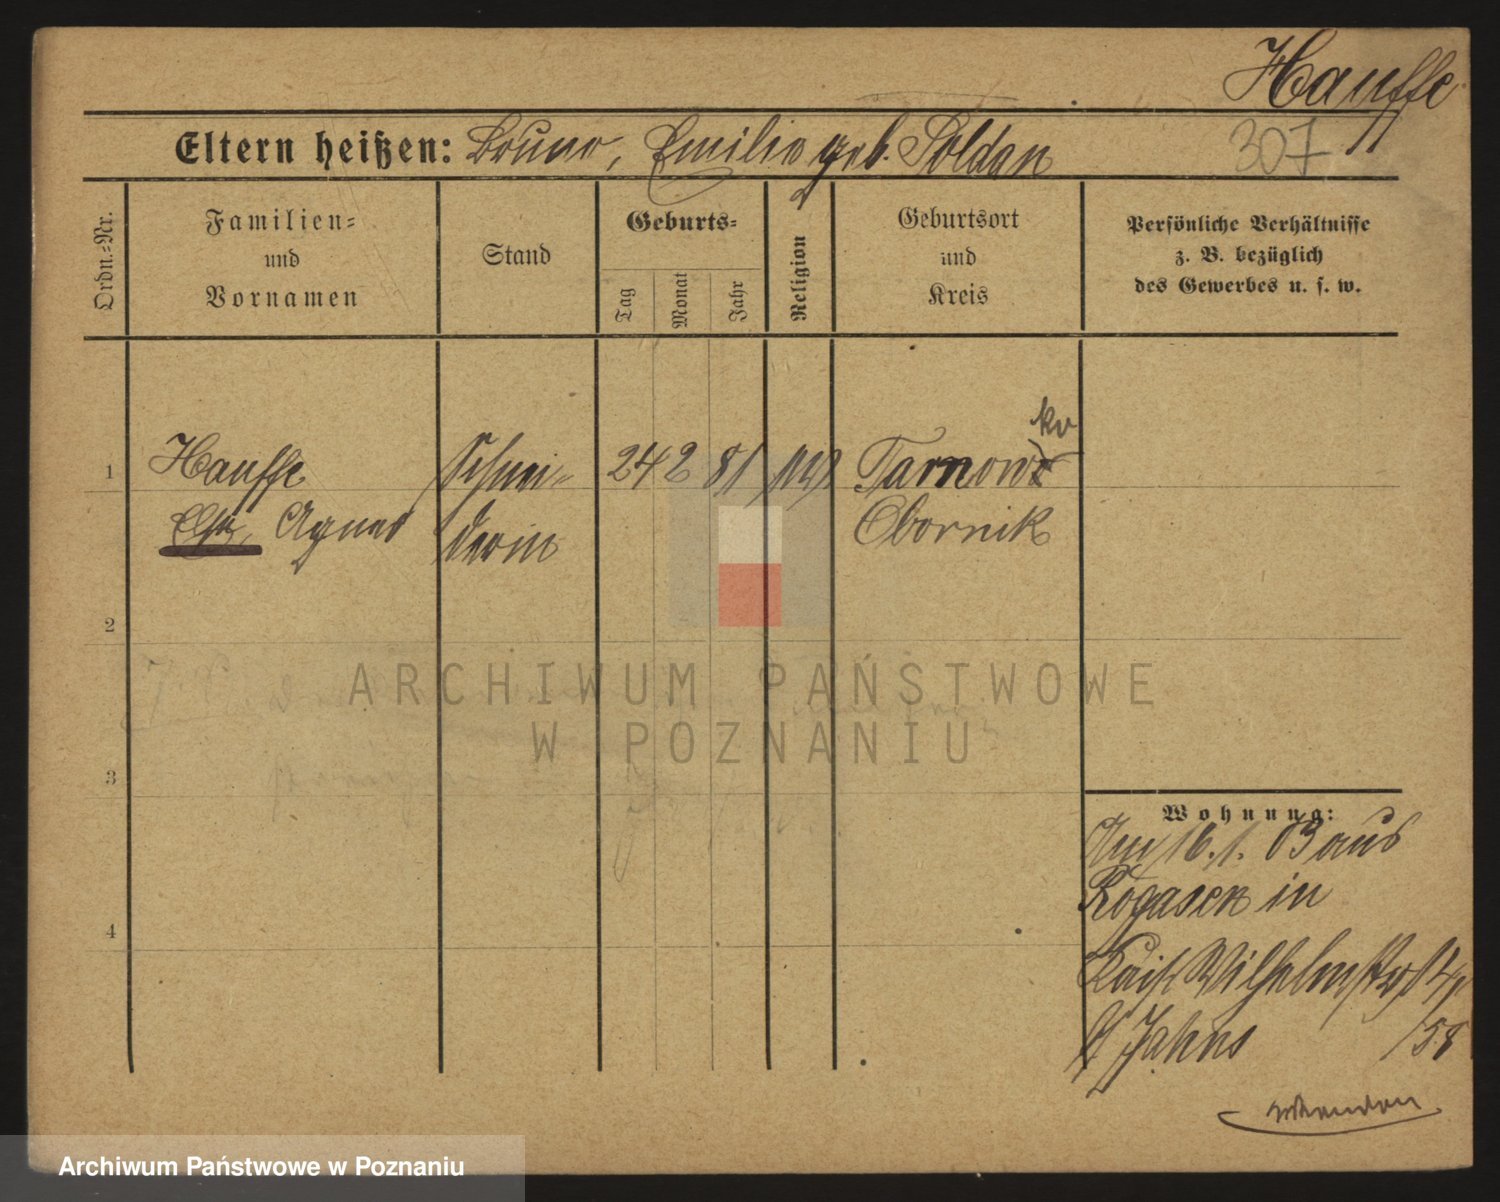 Hauffe
307
Eltern heißen: Bruno, Emilie geb. Soldan
Ordn.-Nr.
Familien-
und
Vornamen
Stand
Geburts-
Tag
Monat
Jahr
Religion
Geburtsort
und
Kreis
Persönliche Verhältnisse
z. B. bezüglich
des Gewerbes u. s. w.
1
Hauffe
Agnes
Schnei-
derin
24 2 81
Tarnowo
ko
Obornik
2
3
4
ARCHIWUM PAŃSTWOWE
W POZNANIU
Wohnung:
Am 16. 1. 03 aus
Rogasen in
Wilhelmstr
b/ Jahns
/58
Archiwum Państwowe w Poznaniu